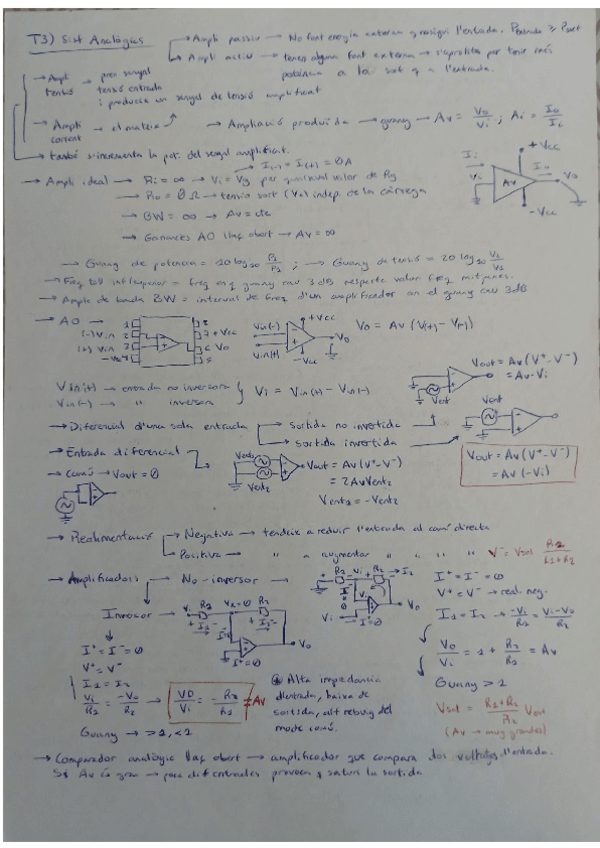 T3) Sist Analògics
→ Ampli passiu → No font energia externa q rosigui l'entrada. Pentrada ≥ Psort
→ Ampli actiu → tenen alguna font externa → s'aprofita per tenir més
potència a la sort q a l'entrada.
→ Ampli tensió → pren senyal
tensió entrada
i produeix un senyal de tensió amplificat
→ Ampli corrent → el mateix
→ Ampliació produïda → guany → Av = Vo/Vi ; Ai = Io/Ii
→ també s'incrementa la pot. del senyal amplificat.
Ii Vi Av Io Vo +Vcc -Vcc
I(-) = I(+) = 0A
→ Ampli ideal → Ri = ∞ → Vi = Vg per qualsevol valor de Rg
→ Ro = 0 Ω → tensió sort (Vo) indep. de la càrrega
→ BW = ∞ → Av = cte
→ Ganancies AO llaç obert → Av = ∞
→ Guany de potència = 10 log10 P2/P1 ; → Guany de tensió = 20 log10 V2/V1
→ Freq tall inf/superior = freq en q guany cau 3dB respecte valor freq mitjanes.
→ Ample de banda BW = interval de freq d'un amplificador on el guany cau 3dB
→ AO
1 8
(-) Vin 2 7 +Vcc
(+) Vin 3 6 Vo
-Vcc 4 5
Vin(-) Vin(+) +Vcc -Vcc Vo
Vo = Av (V(+) - V(-))
Vin(+) → entrada no inversora
Vin(-) → " inversora
Vi = Vin(+) - Vin(-)
Vent
Vout = Av (V⁺-V⁻)
= Av·Vi
→ Diferencial d'una sola entrada → Sortida no invertida
→ sortida invertida
Vent
Vout = Av (V⁺-V⁻)
= Av (-Vi)
→ Entrada diferencial
Vent1 Vent2
Vout = Av (V⁺-V⁻)
= 2AvVent1
Vent1 = -Vent2
→ Comú → Vout = 0
→ Realimentació → Negativa → tendeix a reduir l'entrada al camí directe
→ Positiva → " " a augmentar " " " "
V⁻ = Vsal R1/(R1+R2)
→ Amplificadors → No-inversor →
R1 Vi R2 → I2
Vi I⁺=0 Vo
I⁺ = I⁻ = 0
V⁺ = V⁻ → real. neg.
I1 = I2 → -Vi/R1 = (Vi-Vo)/R2
Vo/Vi = 1 + R2/R1 = Av
Guany > 1
Vsal = (R1+R2)/R1 Vent
(Av → muy grande)
Inversor
Vi R1 Vx=0 R2
+ I1 - + I2 -
I⁺=0 Vo
I⁺ = I⁻ = 0
V⁺ = V⁻
I1 = I2
Vi/R1 = -Vo/R2 → Vo/Vi = -R2/R1 = Av
Guany → >1, <1
Alta impedancia
d'entrada, baixa de
sortida, alt rebuig del
mode comú.
→ Comparador analògic llaç obert → amplificador que compara dos voltatges d'entrada.
Si Av és gran → poca dif entrades provoca q saturi la sortida